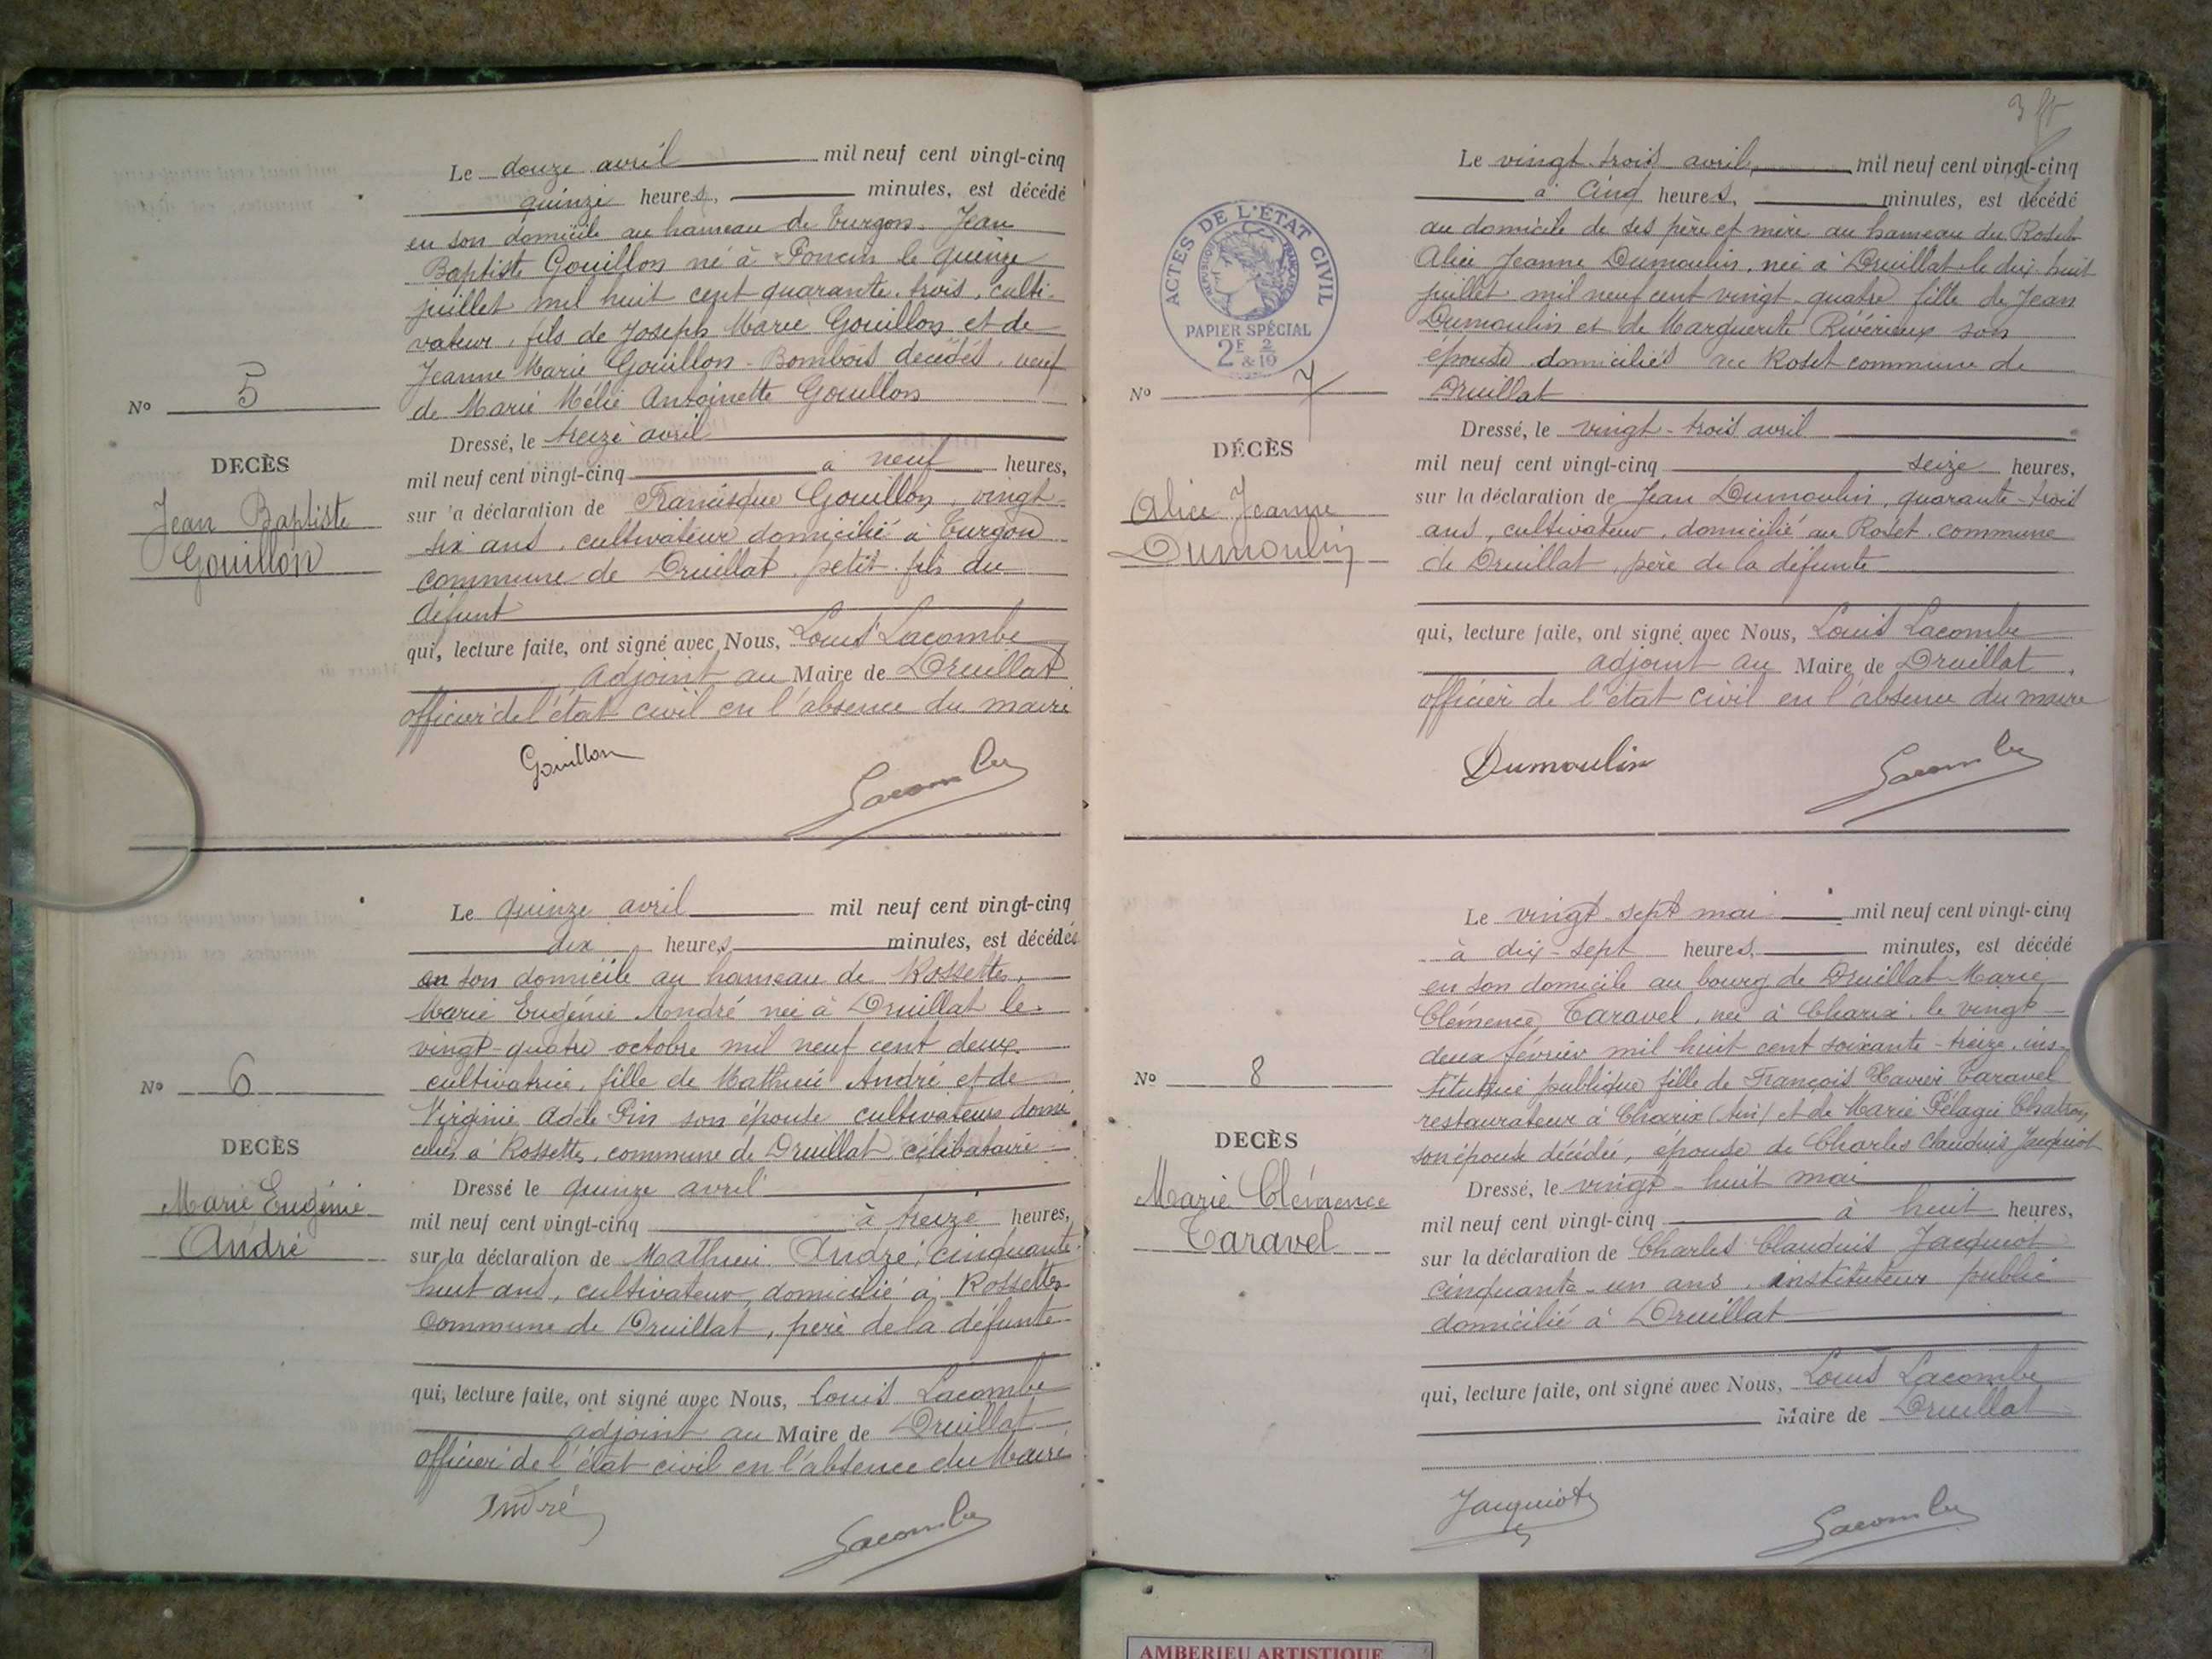 Le douze avril mil neuf cent vingt-cinq
quinze heures, minutes, est décédé
en son domicile au hameau de Turgon Jean
Baptiste Gouillon né à Poncin le quinze
juillet mil huit cent quarante-trois, culti-
vateur, fils de Joseph Marie Gouillon et de
Jeanne Marie Gouillon-Bombois décédés, veuf
de Marie Mélie Antoinette Gouillon
Dressé, le treize avril
mil neuf cent vingt-cinq à neuf heures,
sur la déclaration de Francisque Gouillon, vingt-
six ans, cultivateur domicilié à Turgon
commune de Druillat, petit-fils du
défunt
qui, lecture faite, ont signé avec Nous, Louis Lacombe
adjoint au Maire de Druillat
officier de l'état civil en l'absence du maire
Gouillon
Lacombe
No 5
DECÈS
Jean Baptiste
Gouillon
Le quinze avril mil neuf cent vingt-cinq
dix heures, minutes, est décédée
en son domicile au hameau de Rossettes,
Marie Eugénie André née à Druillat le
vingt-quatre octobre mil neuf cent deux
cultivatrice, fille de Mathieu André et de
Virginie Adèle Pin son épouse cultivateurs domi
ciliés à Rossettes, commune de Druillat, célibataire
Dressé le quinze avril
mil neuf cent vingt-cinq à treize heures,
sur la déclaration de Mathieu André, cinquante-
huit ans, cultivateur, domicilié à Rossettes
commune de Druillat, père de la défunte
qui, lecture faite, ont signé avec Nous, Louis Lacombe
adjoint au Maire de Druillat
officier de l'état civil en l'absence du Maire
André
Lacombe
No 6
DECÈS
Marie Eugénie
André
ACTES DE L'ÉTAT CIVIL
REPUBLIQUE FRANÇAISE
PAPIER SPÉCIAL
2F 2/10
&
Le vingt-trois avril, mil neuf cent vingt-cinq
à cinq heures, minutes, est décédé
au domicile de ses père et mère au hameau du Roset
Alice Jeanne Dumoulin, née à Druillat le dix-huit
juillet mil neuf cent vingt-quatre fille de Jean
Dumoulin et de Marguerite Rivérieux son
épouse domiciliés au Roset commune de
Druillat
Dressé, le vingt-trois avril
mil neuf cent vingt-cinq seize heures,
sur la déclaration de Jean Dumoulin, quarante-trois
ans, cultivateur, domicilié au Roset, commune
de Druillat, père de la défunte
qui, lecture faite, ont signé avec Nous, Louis Lacombe
adjoint au Maire de Druillat
officier de l'état civil en l'absence du maire
Dumoulin
Lacombe
No 7
DÉCÈS
Alice Jeanne
Dumoulin
Le vingt-sept mai mil neuf cent vingt-cinq
à dix-sept heures, minutes, est décédé
en son domicile au bourg de Druillat Marie
Clémence Taravel, née à Charix le vingt-
deux février mil huit cent soixante-treize, ins-
titutrice publique fille de François Xavier Taravel
restaurateur à Charix (Ain) et de Marie Pélagie Chatron
son épouse décédée, épouse de Charles Claudius Jacquiot
Dressé, le vingt-huit mai
mil neuf cent vingt-cinq à huit heures,
sur la déclaration de Charles Claudius Jacquiot
cinquante-un ans, instituteur public
domicilié à Druillat
qui, lecture faite, ont signé avec Nous, Louis Lacombe
Maire de Druillat
Jacquiot
Lacombe
No 8
DECÈS
Marie Clémence
Taravel
AMBERIEU ARTISTIQUE